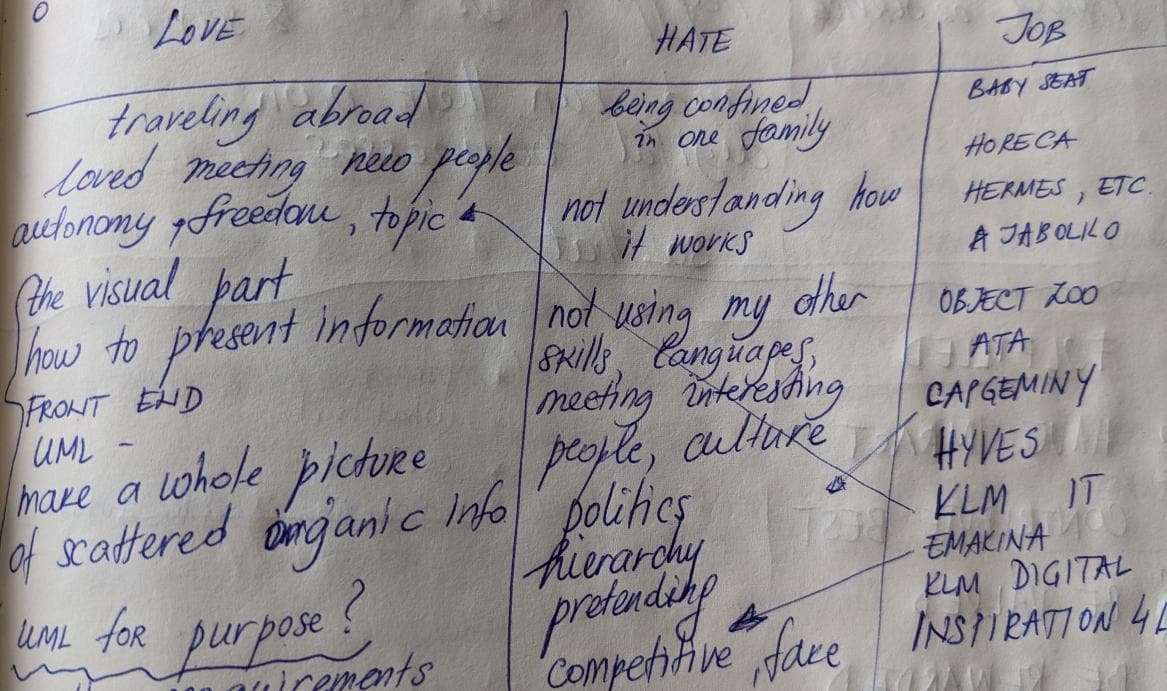 LOVE
HATE
JOB
traveling abroad
loved meeting new people
autonomy, freedom, topic
the visual part
how to present information
FRONT END
UML -
make a whole picture
of scattered organic info.
UML for purpose?
being confined
in one family
not understanding how
it works
not using my other
skills, languages,
meeting interesting
people, culture
politics
hierarchy
pretending
competitive, fake
BABY SEAT
HORECA
HERMES, ETC.
A JABOLKO
OBJECT ZOO
ATA
CAPGEMINY
HYVES
KLM IT
EMAKINA
KLM DIGITAL
INSPIRATION 4